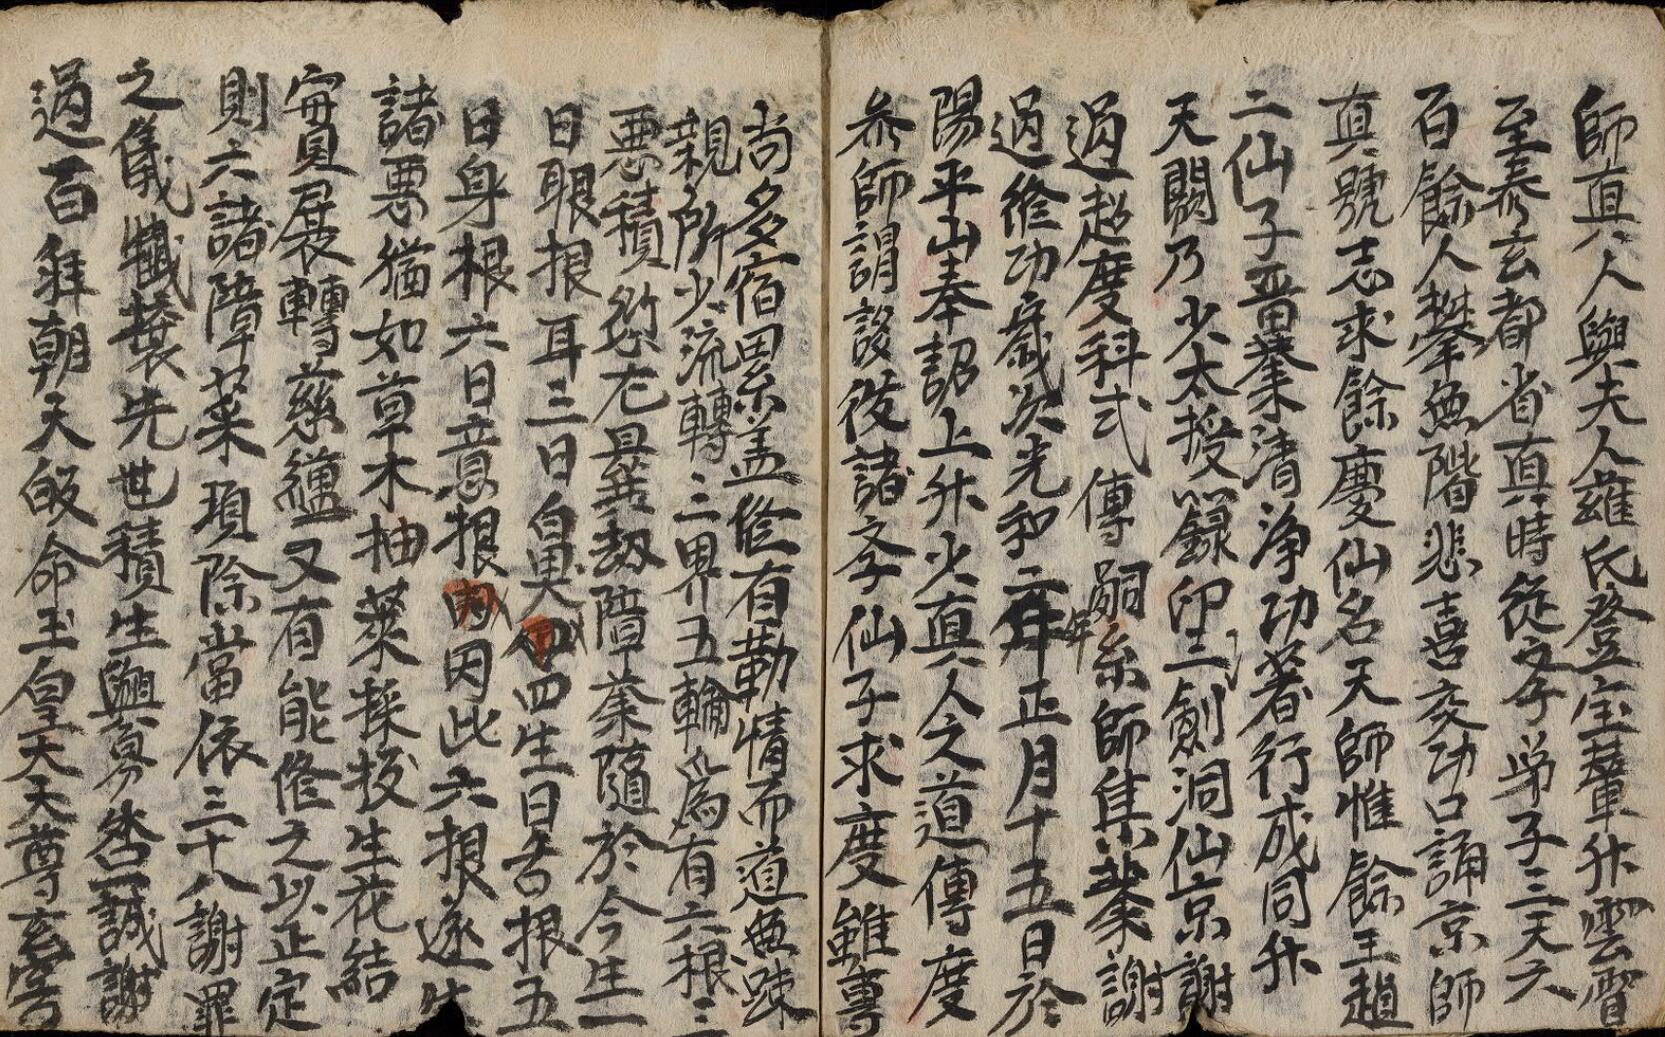 師真人與夫人雍氏登宝輦升雲霄
至泰玄都省真時從文弟子三天六
百餘人攀無階悲喜交功口誦京師
真號志求餘慶仙名天師惟餘王趙
二仙子晋業清淨功著行成同升
天闕乃火太授錄印二劍洞仙京謝
過超度科式傳嗣系師集業謝
過修功歲次光和二年正月十五日於
陽平山奉詔上升火真人之道傳度
叅師謂設後諸文子仙子求度雖尊
尚多宿累盖修有勤情而道無踈
親所少流轉三界五輪為有六根三
悪積愆尤曩劫障業隨於今生一
曰眼根耳三曰鼻四生曰舌根五
曰身根六曰意根因此六根遂生
諸悪猶如草木抽葉採授生花結
實展轉慈纏又有能修之以正定
則六諸障菜項除當依三十八謝罪
之儀懺先世積生與身一誠謝
過百拜朝天皈命玉皇大天尊玄穹